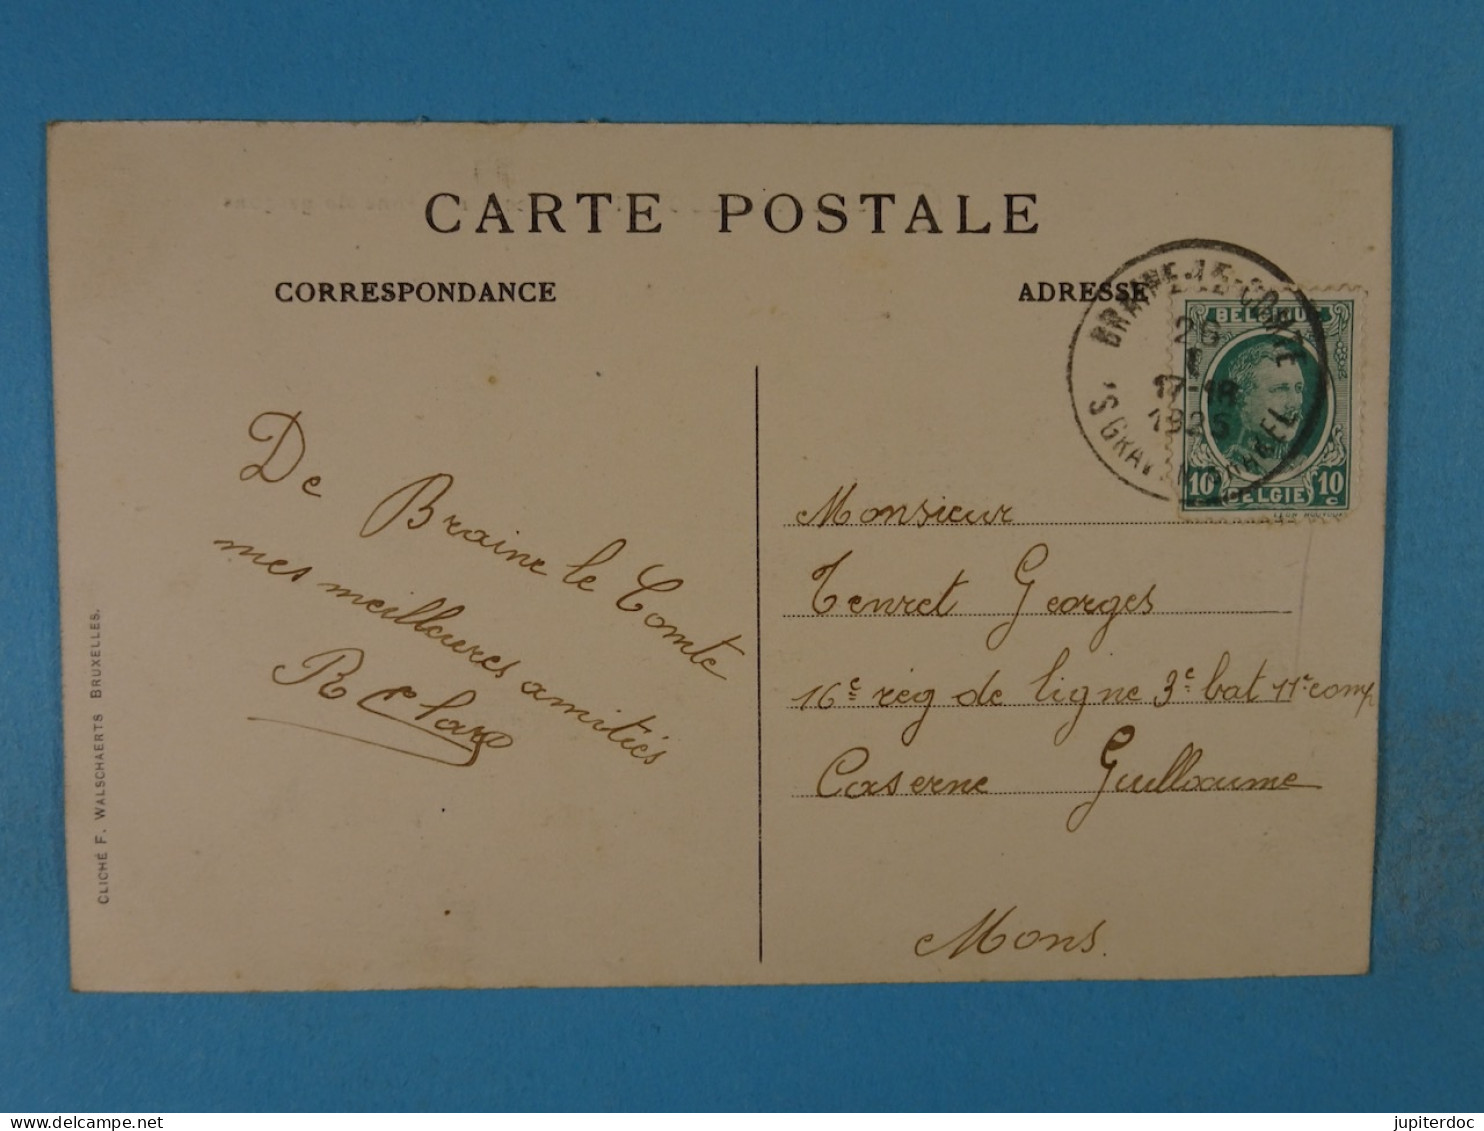 CARTE POSTALE
CORRESPONDANCE
ADRESSE
BRAINE-LE-COMTE
26
1
17-18
1925
'S GRAVENBRAKEL
BELGIQUE
10 BELGIE 10
c
De Braine le Comte
mes meilleures amitiés
R Clara
Monsieur
Tenret Georges
16e rég de ligne 3e bat 11e comp
Caserne Guillaume
Mons.
CLICHÉ F. WALSCHAERTS BRUXELLES.
jupiterdoc
delcampe.net